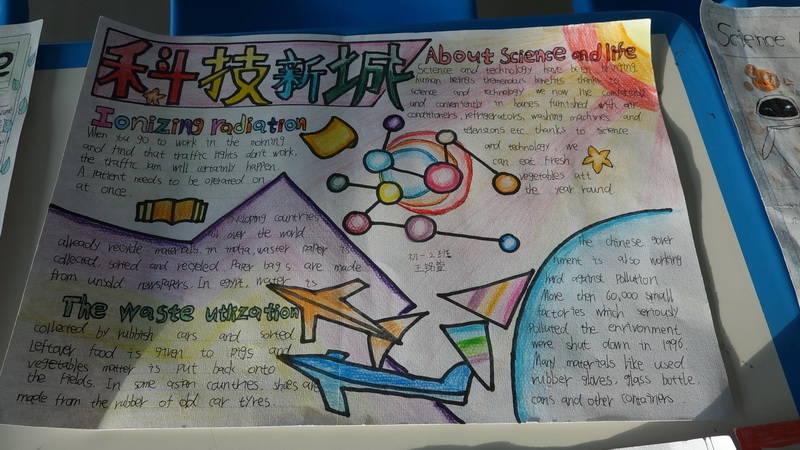 科技新城
About Science and life
Science and technology have been bringing
human beings tremendous benefits. thanks to
science and technology we now live comfortably
and conveniently in houses furnished with air
conditioners, refrigerators, washing machines, and
televisions etc. thanks to science
and technology, we
can eat fresh
vegetables att
the year round
Ionizing radiation
When you go to work in the morning
and find that traffic rights don't work,
the traffic jam will certainly happen.
A patient needs to be operated on
at once.
developing countries
all over the world
already recycle materials. in india, waster paper is
collected sorted and recycled. Paper bags are made
from unsold newspapers. In egypt, mater is
The waste utlization
collected by rubbish cars and sorted
Leftover food is given to pigs and
vegetables matter is put back onto
the fields. In some asian countries, shoes are
made from the rubber of old car tyres.
初一2班
The chinese gover
nment is also working
hard against pollution
More then 60,000 small
factories which seriously
Polluted the environment
were shut down in 1996
Many materials like used
rubber gloves, glass bottle,
cans and other containers
Science